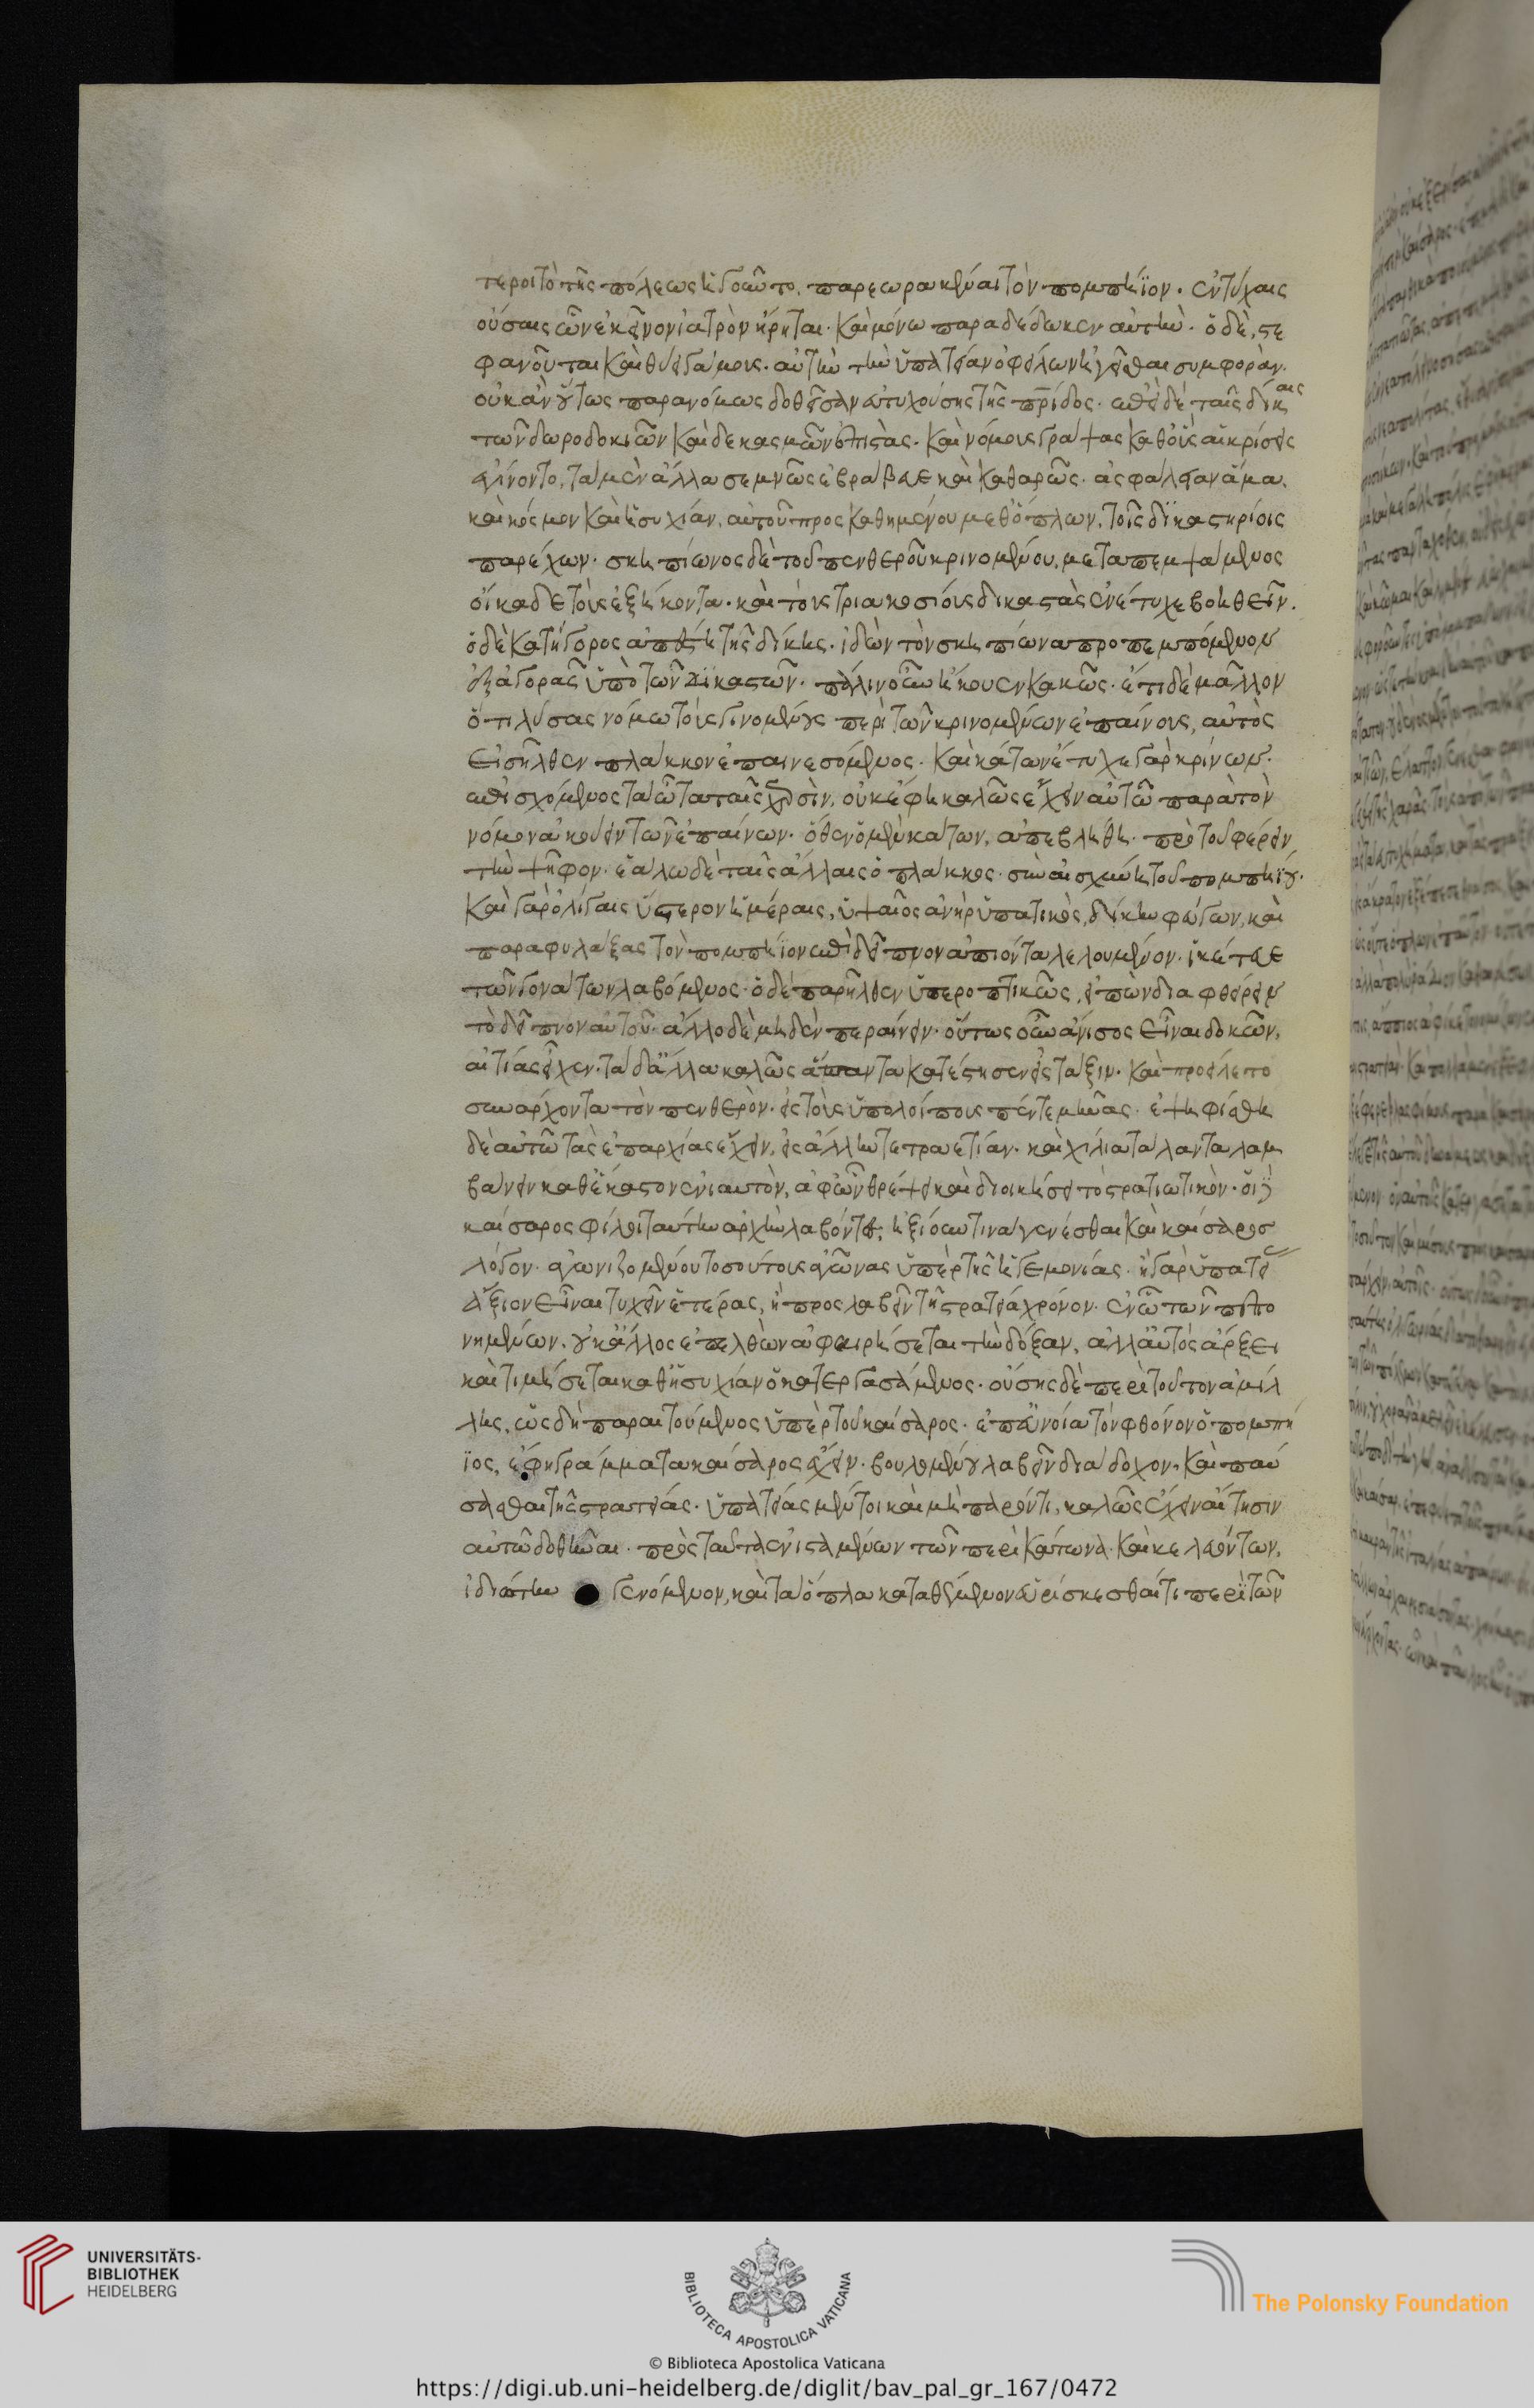 τεροι τὸ τῆς πόλεως ἡγοῦντο, παρεωρακέναι τὸν πομπήϊον. ἐν τύχαις
οὔσαις ὧν ἐκεῖνον ἰατρὸν ᾕρηται. καὶ μόνω παραδέδωκεν αὐτὴν. ὁ δὲ, στε
φανοῦται καὶ θύει γάμοις. αὐτὴν τὴν ὑπατείαν ὀφείλων ἡγεῖσθαι συμφορὰν.
οὐκ ἂν οὕτως παρανόμως δοθεῖσαν εὐτυχούσης τῆς πρίδος. ἐπεὶ δὲ ταῖς δίκαις
τῶν δωροδοκιῶν καὶ δεκασμῶν ἐπιστὰς. καὶ νόμους γράψας καθ' οὓς αἱ κρίσεις
ἐγίνοντο, τὰ μὲν ἄλλα σεμνῶς ἐβράβευε καὶ καθαρῶς. ἀσφάλειαν ἅμα.
καὶ κόσμον καὶ ἡσυχίαν, αὐτοῦ προσκαθημένου μεθ' ὅπλων, τοῖς δικαστηρίοις
παρέχων. σκηπίωνος δὲ τοῦ πενθεροῦ κρινομένου, μεταπεμψάμενος
οἴκαδε τοὺς ἑξήκοντα. καὶ τριακοσίους δικαστὰς ἐνέτυχε βοηθεῖν.
ὁ δὲ κατήγορος ἀπέστη τῆς δίκης. ἰδὼν τὸν σκηπίωνα προπεμπόμενον
ἐξ ἀγορᾶς ὑπὸ τῶν δικαστῶν. πάλιν οὖν ἤκουεν κακῶς. ἔτι δὲ μᾶλλον
ὅτι λύσας νόμω τοὺς γινομένους περὶ τῶν κρινομένων ἐπαίνους, αὐτὸς
εἰσῆλθεν πλάγκον ἐπαινεσόμενος. καὶ κάτων ἔτυχε γὰρ κρίνων.
ἐπισχόμενος τὰ ὦτα ταῖς χερσὶν, οὐκ ἔφη καλῶς ἔχειν αὐτῶ παρὰ τὸν
νόμον ἀκούειν τῶν ἐπαίνων. ὅθεν ὁ μὲν κάτων, ἀπεβλήθη. πρὸ τοῦ φέρειν
τὴν ψῆφον. ἑάλω δὲ ταῖς ἄλλαις ὁ πλάγκος. σὺν αἰσχύνη τοῦ πομπηΐου.
καὶ γὰρ ὀλίγαις ὕστερον ἡμέραις, ὑψαῖος ἀνὴρ ὑπατικὸς, δίκην φεύγων, καὶ
παραφυλάξας τὸν πομπήϊον ἐπὶ δεῖπνον ἀπιόντα λελουμένον. ἱκέτευε
τῶν γονάτων λαβόμενος. ὁ δὲ παρῆλθεν ὑπεροπτικῶς, εἰπὼν διαφθείρειν
τὸ δεῖπνον αὐτοῦ. ἄλλο δὲ μηδὲν περαίνειν. οὕτως οὖν ἄνισος εἶναι δοκῶν,
αἰτίας εἶχεν. τὰ δ' ἄλλα καλῶς ἅπαντα κατέστησεν εἰς τάξιν. καὶ προσείλετο
συνάρχοντα τὸν πενθερὸν. εἰς τοὺς ὑπολοίπους πέντε μῆνας. ἐψηφίσθη
δὲ αὐτῶ τὰς ἐπαρχίας ἔχειν, εἰς ἄλλην τετραετίαν. καὶ χίλια τάλαντα λαμ
βάνειν καθ' ἕκαστον ἐνιαυτὸν, ἀφ' ὧν θρέψει καὶ διοικήσει τὸ στρατιωτικὸν. οἱ δὲ
καίσαρος φίλοι ταύτην ἀρχὴν λαβόντες, ἠξίουν τινα γενέσθαι καὶ καίσαρος
λόγον. ἀγωνιζομένου τοσούτους ἀγῶνας ὑπὲρ τῆς ἡγεμονίας. ἢ γὰρ ὑπατεί
ας ἄξιον εἶναι τυχεῖν ἑτέρας, ἢ προσλαβεῖν τῆ στρατεία χρόνον. ἐν ὧ τῶν πεπο
νημένων, οὐκ ἄλλος ἐπελθὼν ἀφαιρήσεται τὴν δόξαν, ἀλλ' αὐτὸς ἄρξει
καὶ τιμήσεται καθ' ἡσυχίαν ὁ κατεργασάμενος. οὔσης δὲ περὶ τούτων ἁμίλ
λης, ὡς δὴ παραιτούμενος ὑπὲρ τοῦ καίσαρος. ἐπ' εὐνοία τὸν φθόνον ὁ πομπή
ϊος, ἔφη γράμματα καίσαρος ἔχειν. βουλομένου λαβεῖν διάδοχον. καὶ παύ
σασθαι τῆς στρατείας. ὑπατείας μέντοι καὶ μὴ παρόντι, καλῶς ἔχειν αἴτησιν
αὐτῶ δοθῆναι. πρὸς ταῦτα ἐνισταμένων τῶν περὶ κάτωνα. καὶ κελευόντων,
ἰδιώτην γενόμενον, καὶ τὰ ὅπλα καταθέμενον εὑρίσκεσθαί τι περὶ τῶν
UNIVERSITÄTS-
BIBLIOTHEK
HEIDELBERG
BIBLIOTECA APOSTOLICA VATICANA
The Polonsky Foundation
© Biblioteca Apostolica Vaticana
https://digi.ub.uni-heidelberg.de/diglit/bav_pal_gr_167/0472